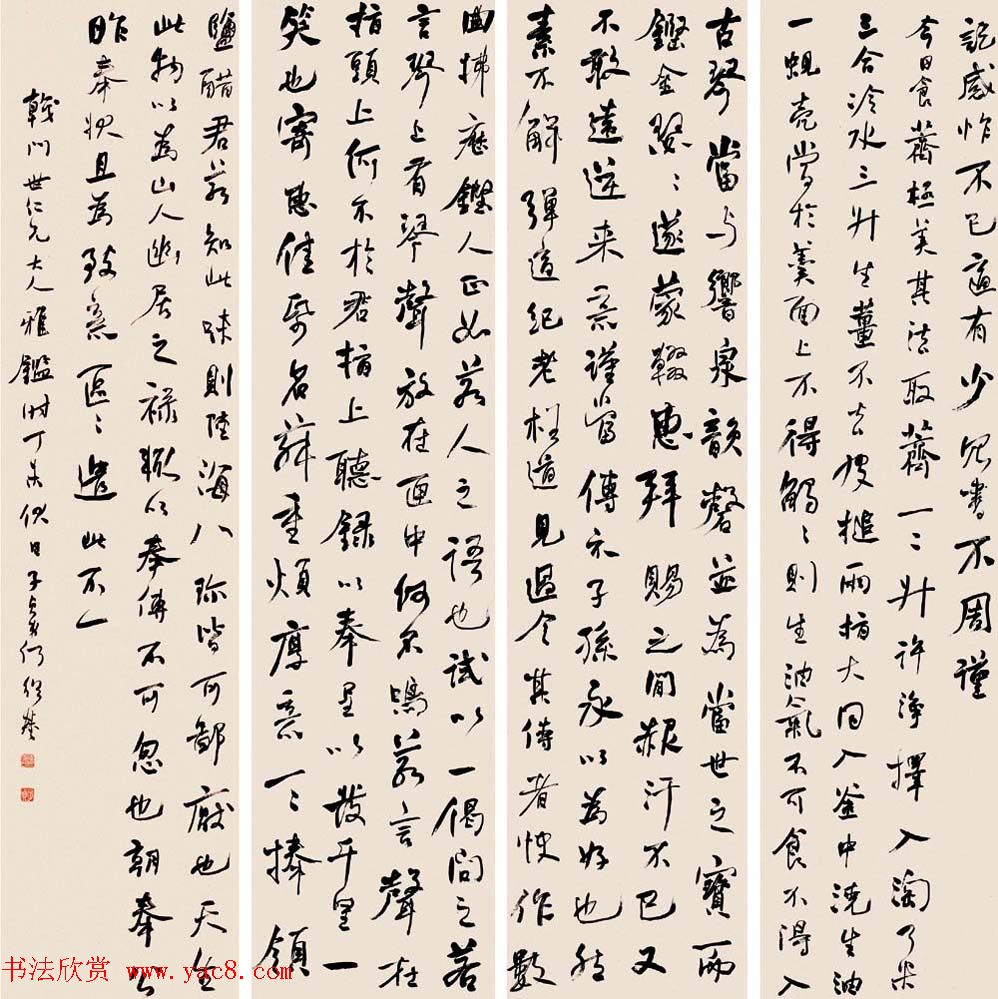 記感怍不已適有少冗書不周謹
今日食薺極美其法取薺一二升許淨擇入淘了米
三合冷水三升生薑不去皮搥兩指大同入釜中澆生油
一蜆壳當於羹面上不得觸〻則生油氣不可食不得入
古琴當与響泉韻磬並為當世之寶而
鏗金瑟〻遂蒙輟惠拜賜之間赧汗不已又
不敢遠逆来意謹當傳示子孫永以為好也然
素不解彈適紀老枉道見過令其侍者快作數
曲拂歷鏗人正如若人之語也試以一偈問之若
言琴上有琴聲放在匣中何不鳴若言聲在
指頭上何不於君指上聽録以奉呈以發千里一
笑也寄惠佳帋名荈重煩厚意一一捧領
鹽醋君若知此味則陸海八珍皆可鄙厭也天生
此物以為山人幽居之禄輒以奉傳不可忽也朝奉公
昨奉狀且為致意區〻遣此不一
戟門世仁兄大人雅鑑时丁未伏日子貞何紹基
书法欣赏 www.yac8.com